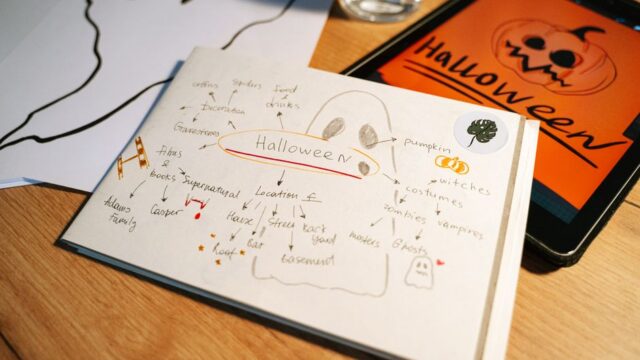 coffins
Spiders
food
&
drinks
Decoration
Gravestones
Halloween
pumpkin
films
&
books
Supernatural
Location
costumes
witches
Adams
Family
Casper
House
Street
back
yard
zombies
vampires
Roof
Bar
Basement
Ghosts
Halloween